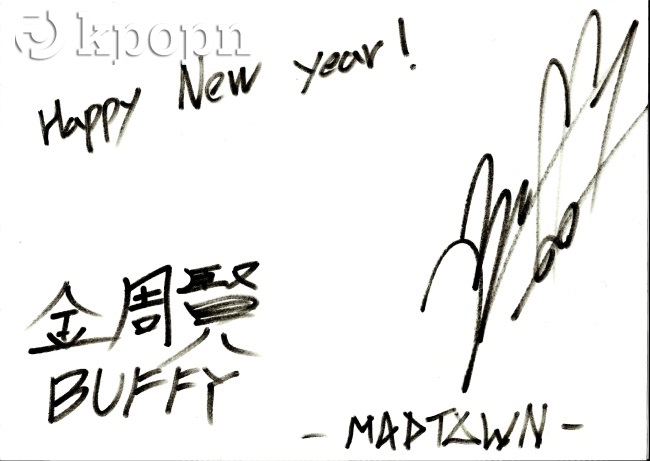 kpopn
Happy New Year!
金周賢
BUFFY
- MADTOWN -